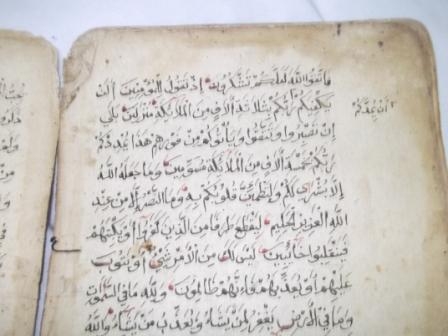 فاتقوا الله لعلكم تشكرون اذ تقول للمؤمنين الن
يكفيكم ربكم بثلاثة الاف من الملائكة منزلين بلى
ان تصبروا وتتقوا ويأتوكم من فورهم هذا يمددكم
ربكم بخمسة الاف من الملائكة مسومين وما جعله الله
الا بشرى لكم ولتطمئن قلوبكم به وما النصر الا من عند
الله العزيز الحكيم ليقطع طرفا من الذين كفروا او يكبتهم
فينقلبوا خائبين ليس لك من الامر شيء او يتوب
عليهم او يعذبهم فانهم ظالمون ولله ما في السموات
وما في الارض يغفر لمن يشاء ويعذب من يشاء والله
ان يمدكم